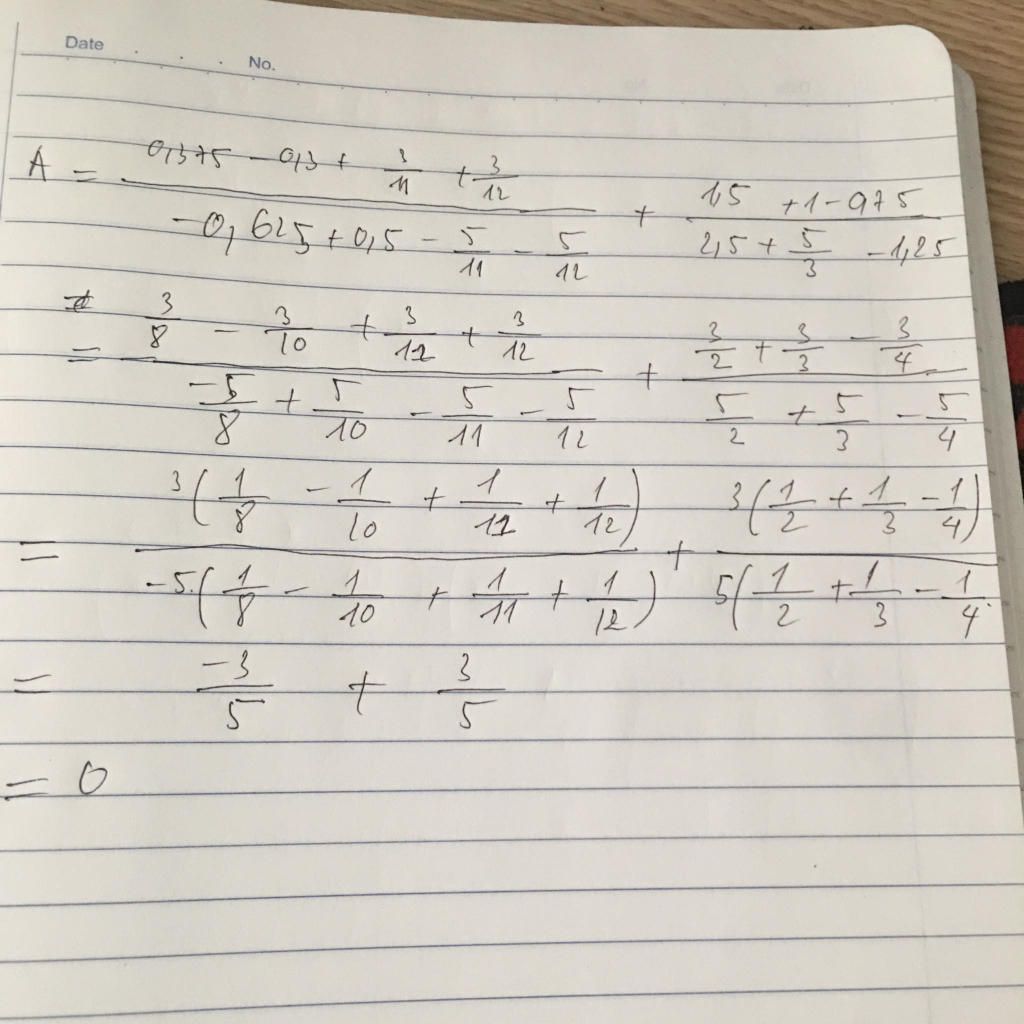 Date No.
A = \frac{0,375 - 0,3 + \frac{3}{11} + \frac{3}{12}}{-0,625 + 0,5 - \frac{5}{11} - \frac{5}{12}} + \frac{1,5 + 1 - 0,75}{2,5 + \frac{5}{3} - 1,25}
= \frac{\frac{3}{8} - \frac{3}{10} + \frac{3}{11} + \frac{3}{12}}{\frac{-5}{8} + \frac{5}{10} - \frac{5}{11} - \frac{5}{12}} + \frac{\frac{3}{2} + \frac{3}{3} - \frac{3}{4}}{\frac{5}{2} + \frac{5}{3} - \frac{5}{4}}
= \frac{3(\frac{1}{8} - \frac{1}{10} + \frac{1}{11} + \frac{1}{12})}{-5.(\frac{1}{8} - \frac{1}{10} + \frac{1}{11} + \frac{1}{12})} + \frac{3(\frac{1}{2} + \frac{1}{3} - \frac{1}{4})}{5(\frac{1}{2} + \frac{1}{3} - \frac{1}{4}}
= \frac{-3}{5} + \frac{3}{5}
= 0